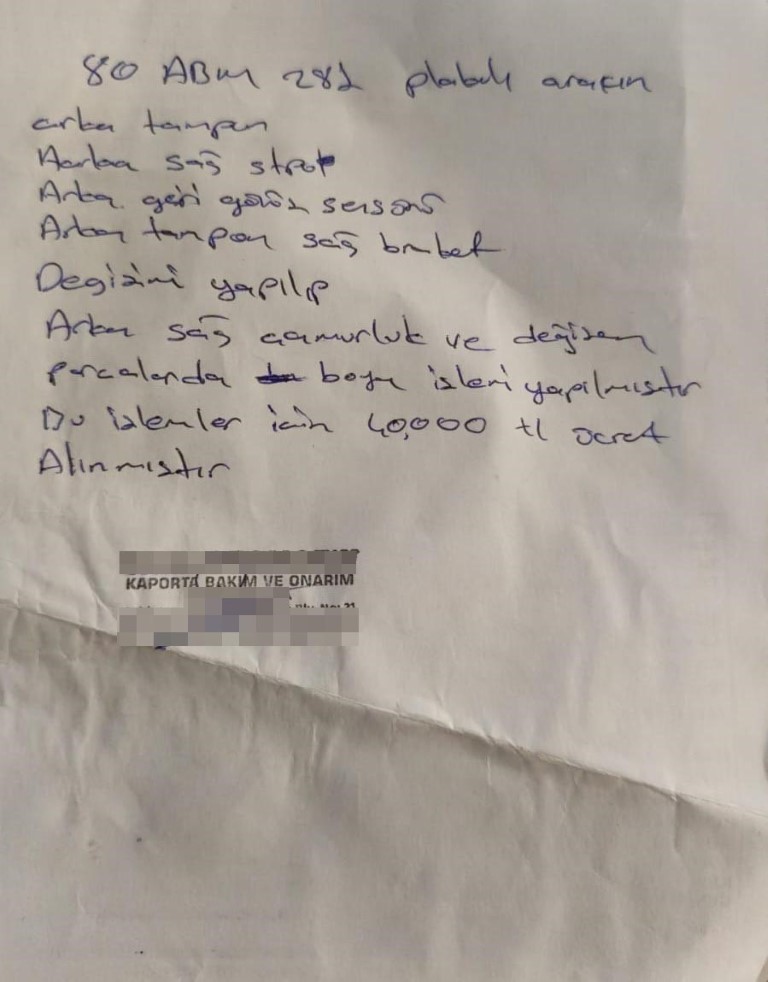 80 ABM 282 plakalı aracın
arka tampon
Aarka sağ strop
Arka geri görüş sensörü
Arka tampon sağ braket
Degizimi yapılıp
Arka sağ çamurluk ve değizen
parcalarda boya izleri yapılmıstır
Bu izlemler icin 40,000 tl ücret
Alınmıstır
KAPORTA BAKIM VE ONARIM